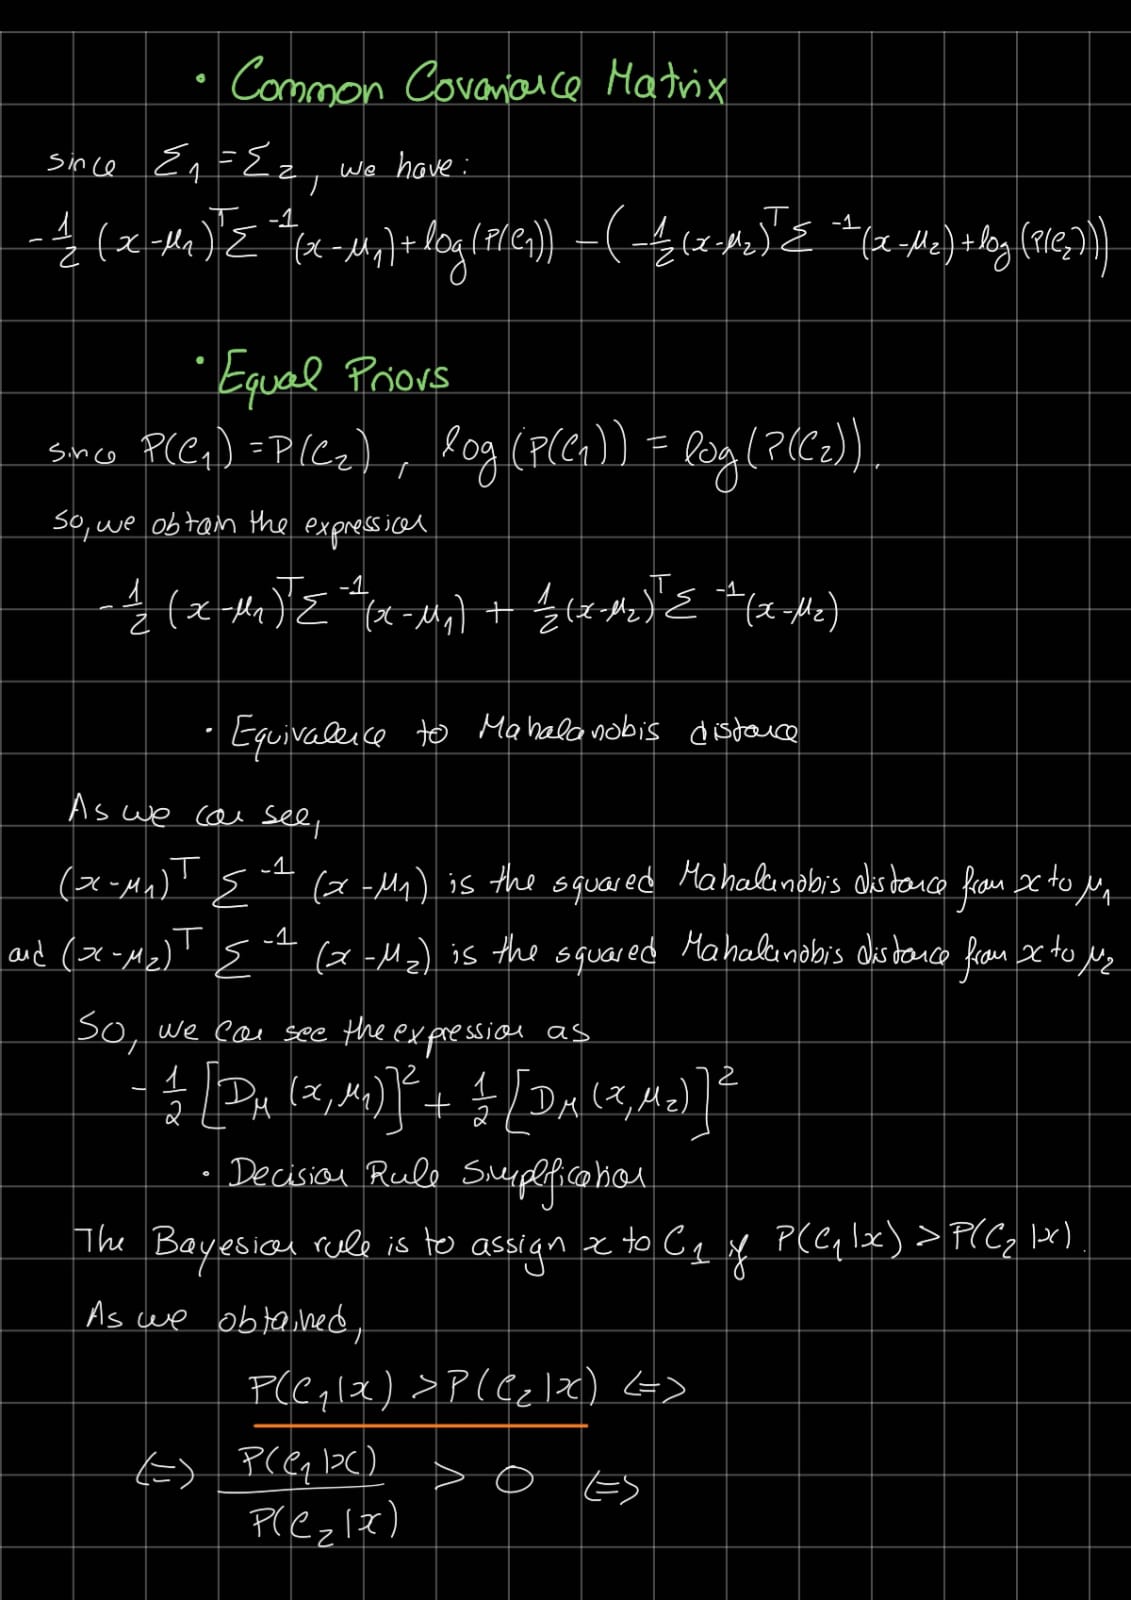 • Common Covariance Matrix
since Σ₁ = Σ₂, we have:
-1/2 (x-μ₁)ᵀ Σ⁻¹ (x-μ₁) + log(P(C₁)) - (-1/2 (x-μ₂)ᵀ Σ⁻¹ (x-μ₂) + log(P(C₂)))
• Equal Priors
since P(C₁) = P(C₂), log(P(C₁)) = log(P(C₂)).
So, we obtain the expression
-1/2 (x-μ₁)ᵀ Σ⁻¹ (x-μ₁) + 1/2 (x-μ₂)ᵀ Σ⁻¹ (x-μ₂)
• Equivalence to Mahalanobis distance
As we can see,
(x-μ₁)ᵀ Σ⁻¹ (x-μ₁) is the squared Mahalanobis distance from x to μ₁
and (x-μ₂)ᵀ Σ⁻¹ (x-μ₂) is the squared Mahalanobis distance from x to μ₂
So, we can see the expression as
-1/2 [D_M (x, μ₁)]² + 1/2 [D_M (x, μ₂)]²
• Decision Rule Simplification
The Bayesian rule is to assign x to C₁ if P(C₁|x) > P(C₂|x).
As we obtained,
P(C₁|x) > P(C₂|x) <=>
<=> P(C₁|x) / P(C₂|x) > 0 <=>